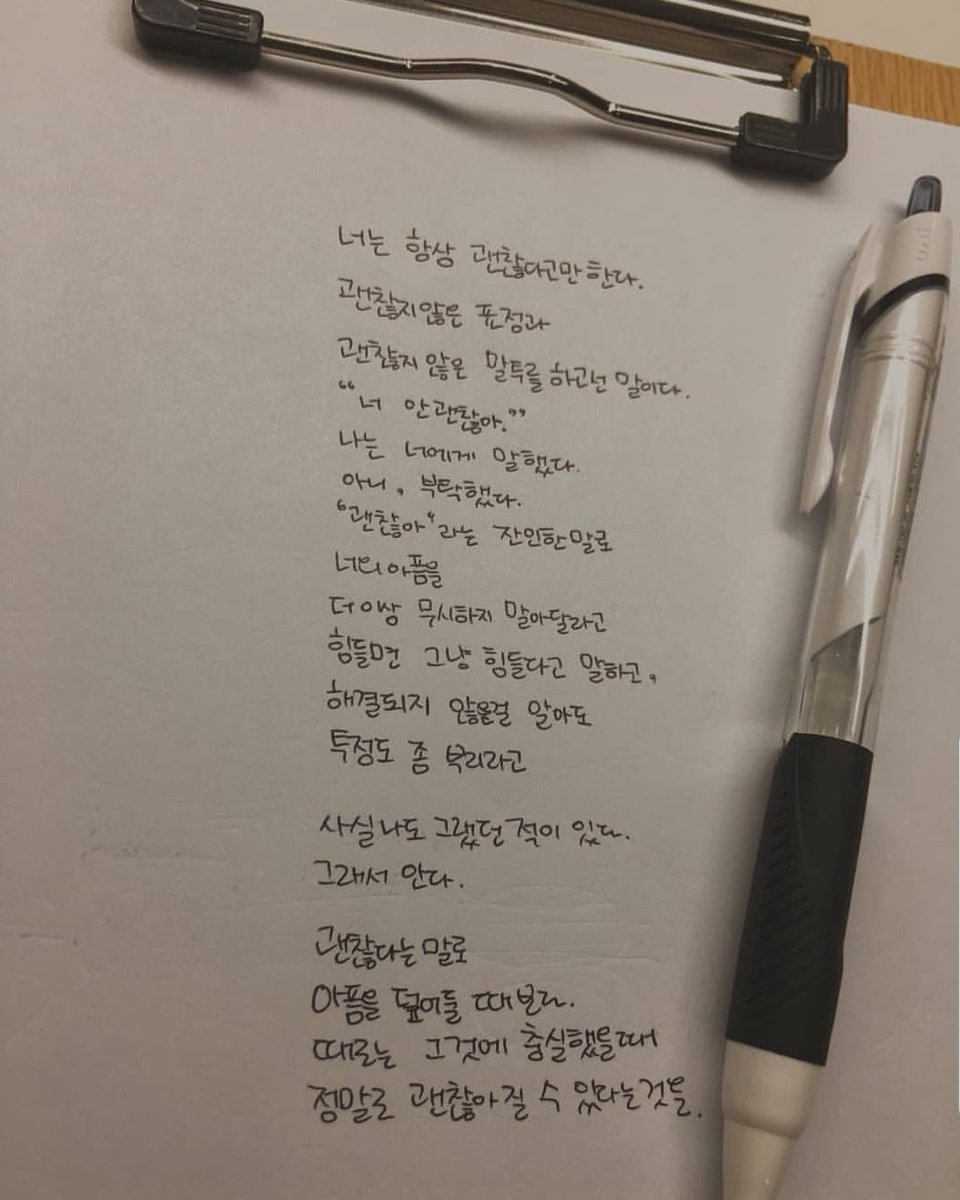 너는 항상 괜찮다고만 한다.
괜찮지않은 표정과
괜찮지 않은 말투를 하고선 말이다.
“너 안괜찮아.”
나는 너에게 말했다.
아니, 부탁했다.
“괜찮아“라는 잔인한말로
너의 아픔을
더이상 무시하지 말아달라고
힘들면 그냥 힘들다고 말하고,
해결되지 않을걸 알아도
투정도 좀 부리라고
사실나도 그랬던 적이 있다.
그래서 안다.
괜찮다는 말로
아픔을 덮어둘 때보다.
때로는 그것에 충실했을때
정말로 괜찮아 질 수 있다는것을.